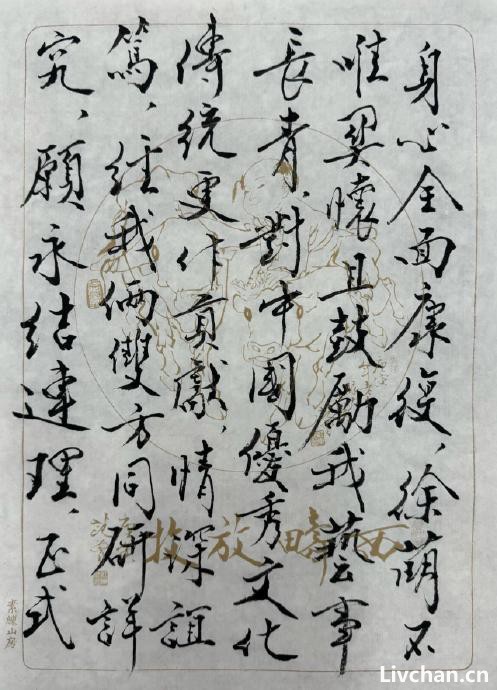 身心全面康復，徐萌不
唯契懷且鼓勵我藝事
長青，對中國優秀文化
傳統更作貢獻，情深誼
篤，經我倆雙方同研詳
究，願永結連理，正式
西疇放牧
素蝶山房
Livchan.cn